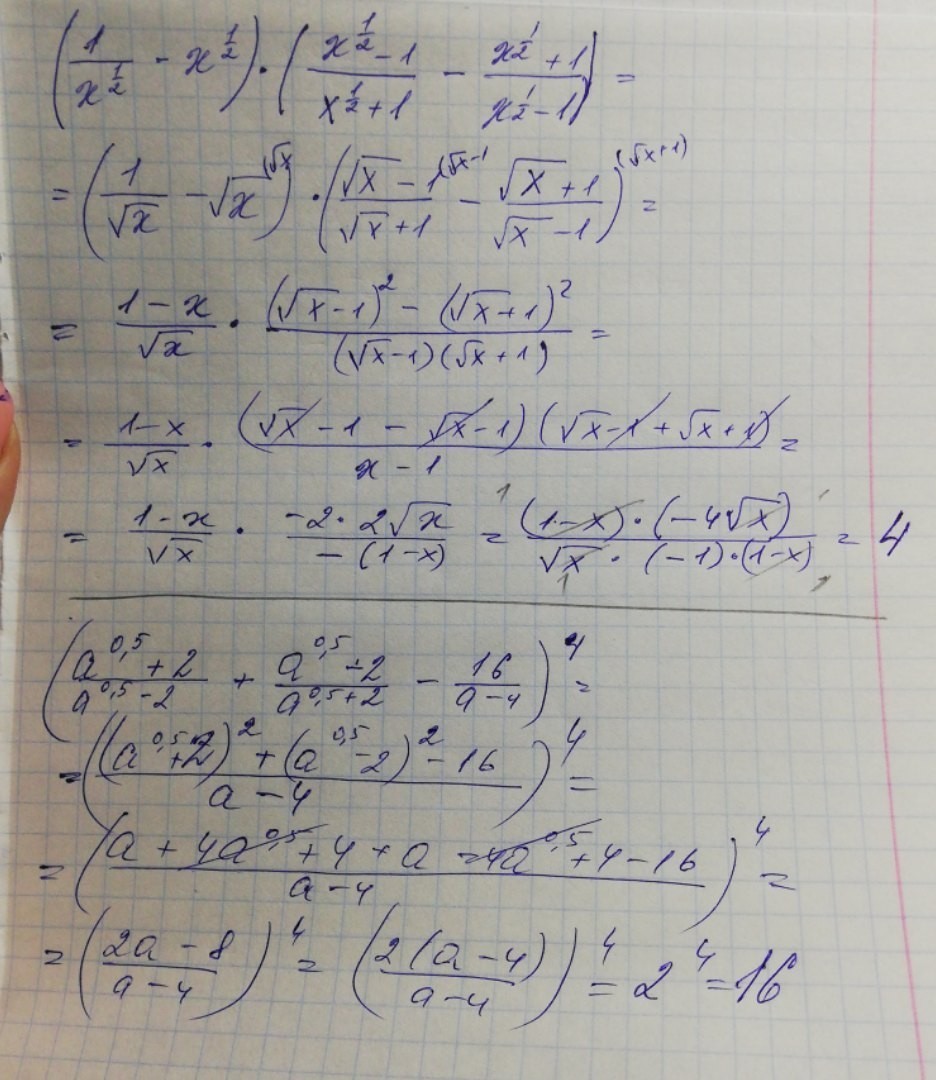 (1/x^(1/2) - x^(1/2)) · ((x^(1/2) - 1)/(x^(1/2) + 1) - (x^(1/2) + 1)/(x^(1/2) - 1)) =
= (1/√x - √x^(√x)) · ((√x - 1)/(√x + 1)^(√x - 1 - (√x + 1)/(√x - 1))^(√x + 1) =
= (1 - x)/√x · ((√x - 1)² - (√x + 1)²)/((√x - 1)(√x + 1)) =
= (1 - x)/√x · ((√x - 1 - √x - 1)(√x - 1 + √x + 1))/(x - 1) =
= (1 - x)/√x · (-2 · 2√x)/(-(1 - x)) = ((1 - x) · (-4√x))/(√x · (-1) · (1 - x)) = 4
((a^0,5 + 2)/(a^0,5 - 2) + (a^0,5 - 2)/(a^0,5 + 2) - 16/(a - 4))^4 =
= (((a^0,5 + 2)² + (a^0,5 - 2)² - 16)/(a - 4))^4 =
= ((a + 4a^0,5 + 4 + a - 4a^0,5 + 4 - 16)/(a - 4))^4 =
= ((2a - 8)/(a - 4))^4 = (2(a - 4)/(a - 4))^4 = 2^4 = 16